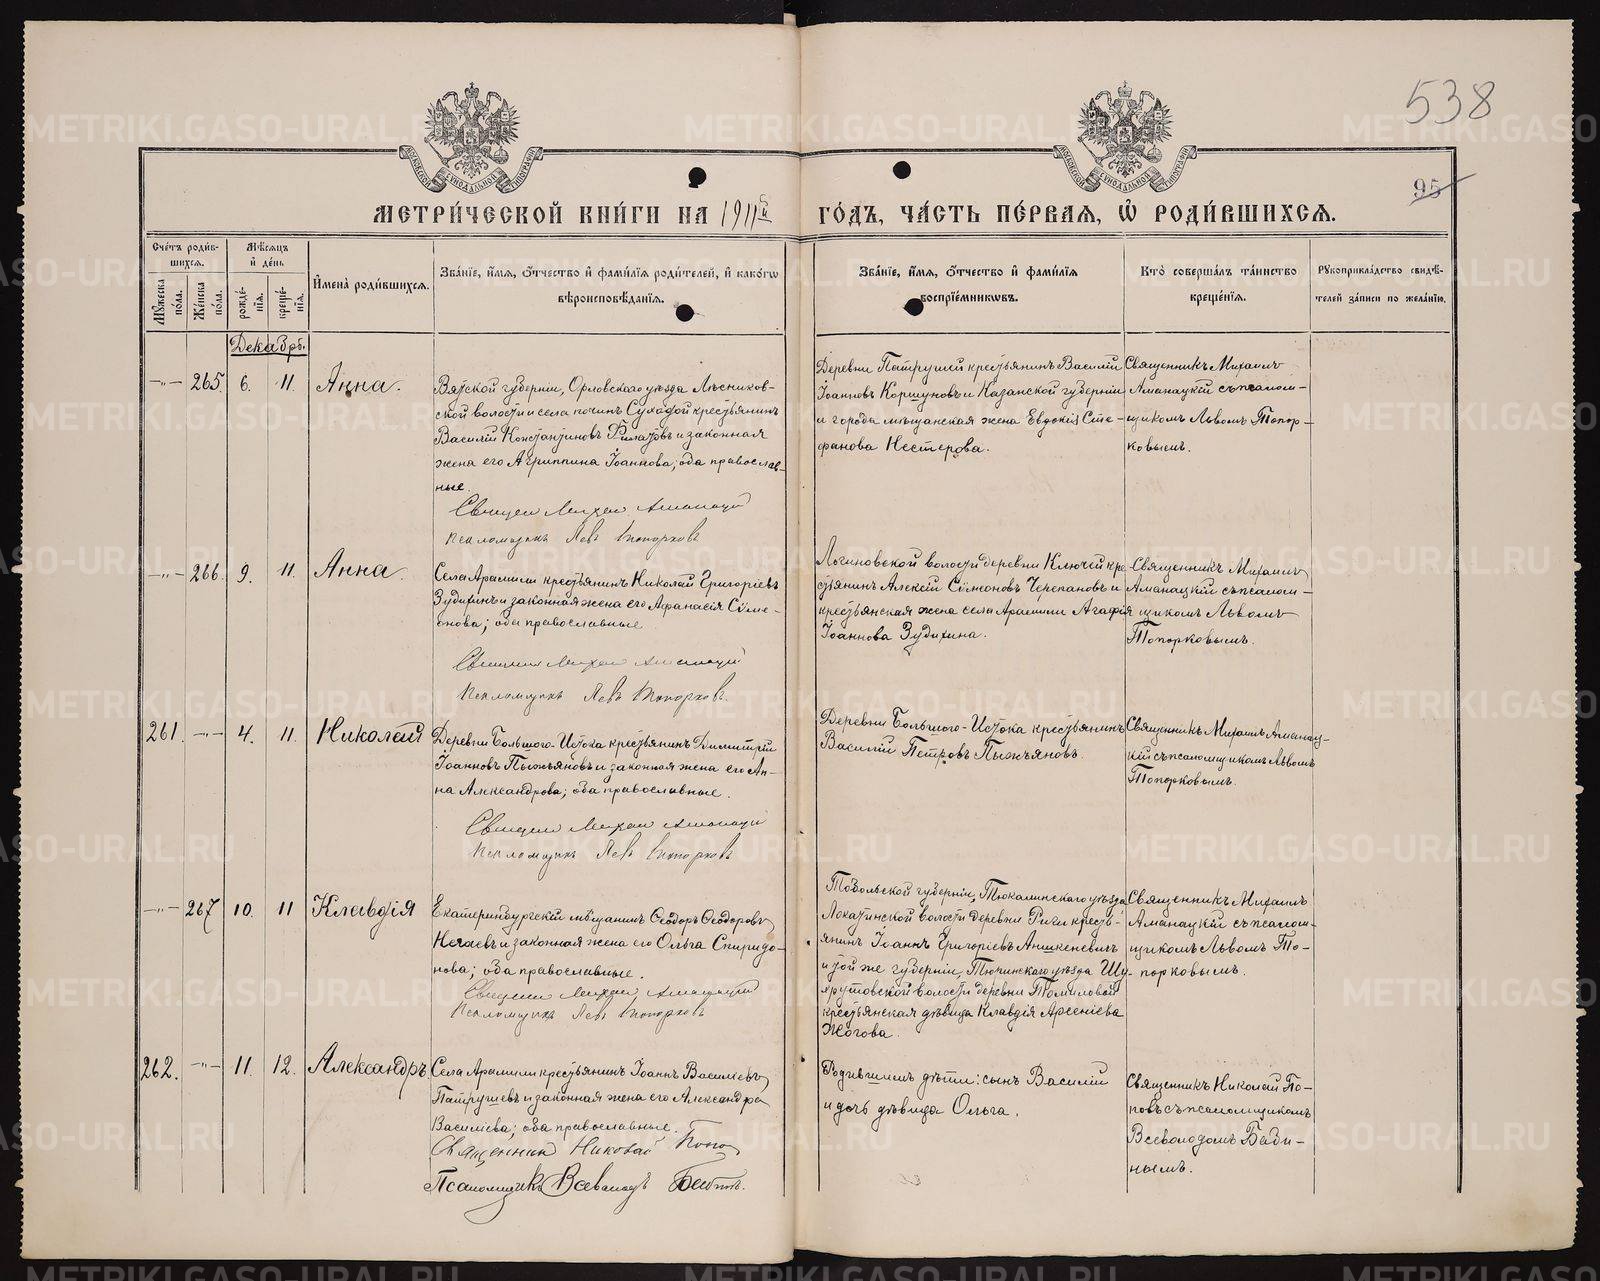 538
95
МОСКОВСКОЙ СѴНОДАЛЬНОЙ ТИПОГРАФІИ
МОСКОВСКОЙ СѴНОДАЛЬНОЙ ТИПОГРАФІИ
МЕТРИ́ЧЕСКОЙ КНИ́ГИ НА 1911й ГО́ДЪ, ЧА́СТЬ ПЕ́РВАЯ, Ѡ҆ РОДИ́ВШИХСЯ.
Сче́тъ роди́в-
шихся.
Мꙋ́жеска по́ла.
Же́нска по́ла.
Мѣ́сяцъ и҆ де́нь
рожде́-
нїя.
креще́-
нїя.
И҆мена̀ роди́вшихся.
Зва́нїе, и҆́мя, ѻ҆́тчество и҆ фами́лїя роди́телей, и҆ како́гѡ
вѣроисповѣ́данїя.
Зва́нїе, и҆́мя, ѻ҆́тчество и҆ фами́лїя
воспрїе́мникѡвъ.
Кто̀ соверша́лъ та́инство
креще́нїя.
Рꙋкоприкла́дство свидѣ́-
телей за́писи по жела́нїю.
Декабрь.
-"- 265 6. 11. Анна.
Вятской губерніи, Орловскаго уѣзда Лѣсников-
ской волости и села починъ Сухафой крестьянинъ
Василій Константиновъ Филатовъ и законная
жена его Агриппина Іоаннова; оба православ-
ные.
Священ Михаил Аманацкій
Псаломщикъ Левъ Топорковъ
Деревни Патруши крестьянинъ Василій
Іоанновъ Коршуновъ и Казанской губерніи
и города мѣщанская жена Евдокія Сте-
фанова Нестерова.
Священникъ Михаилъ
Аманацкій съ псалом-
щикомъ Львомъ Топор-
ковымъ.
-"- 266. 9. 11. Анна.
Села Арамили крестьянинъ Николай Григоріевъ
Зудихинъ и законная жена его Афанасія Сѵме-
онова; оба православные.
Священник Михаил Аманацкій
Псаломщикъ Левъ Топорковъ.
Логиновской волости деревни Ключей кре-
стьянинъ Алексій Сѵмеоновъ Черепановъ и
крестьянская жена села Арамили Агафія
Іоаннова Зудихина.
Священникъ Михаилъ
Аманацкій съ псалом-
щикомъ Львомъ
Топорковымъ.
261. -"- 4. 11. Николай
Деревни Большого-Истока крестьянинъ Димитрій
Іоанновъ Пыжьяновъ и законная жена его Ан-
на Александрова; оба православные.
Священ Михаил Аманацкій
Псаломщикъ Левъ Топорковъ
Деревни Большого-Истока крестьянинъ
Василій Петровъ Пыжьяновъ.
Священникъ Михаилъ Аманац-
кій съ псаломщикомъ Львомъ
Топорковымъ.
-"- 267 10. 11 Клавдія
Екатеринбургскій мѣщанинъ Ѳеодоръ Ѳеодоровъ
Нечаевъ и законная жена его Ольга Спиридо-
нова; оба православные.
Священ Михаил Аманацкій
Псаломщикъ Левъ Топорковъ
Тобольской губерніи, Тюкалинскаго уѣзда
Локатинской волости деревни Риги кресть-
янинъ Іоаннъ Григоріевъ Аншкеневичъ
и той же губерніи, Тюминскаго уѣзда Шу-
хрутовской волости деревни Томиловой
крестьянская дѣвица Клавдія Арсеніева
Жогова.
Священникъ Михаилъ
Аманацкій съ псалом-
щикомъ Львомъ То-
порковымъ.
262. -"- 11. 12. Александръ.
Села Арамили крестьянинъ Іоаннъ Василіевъ
Патрушевъ и законная жена его Александра
Василіева; оба православные.
Священник Николай Попов
Псаломщикъ Всеволодъ Бабинъ.
Родившимъ дѣти: сынъ Василій
и дочь дѣвица Ольга.
Священникъ Николай По-
повъ съ псаломщикомъ
Всеволодомъ Баби-
нымъ.
METRIKI.GASO-URAL.RU